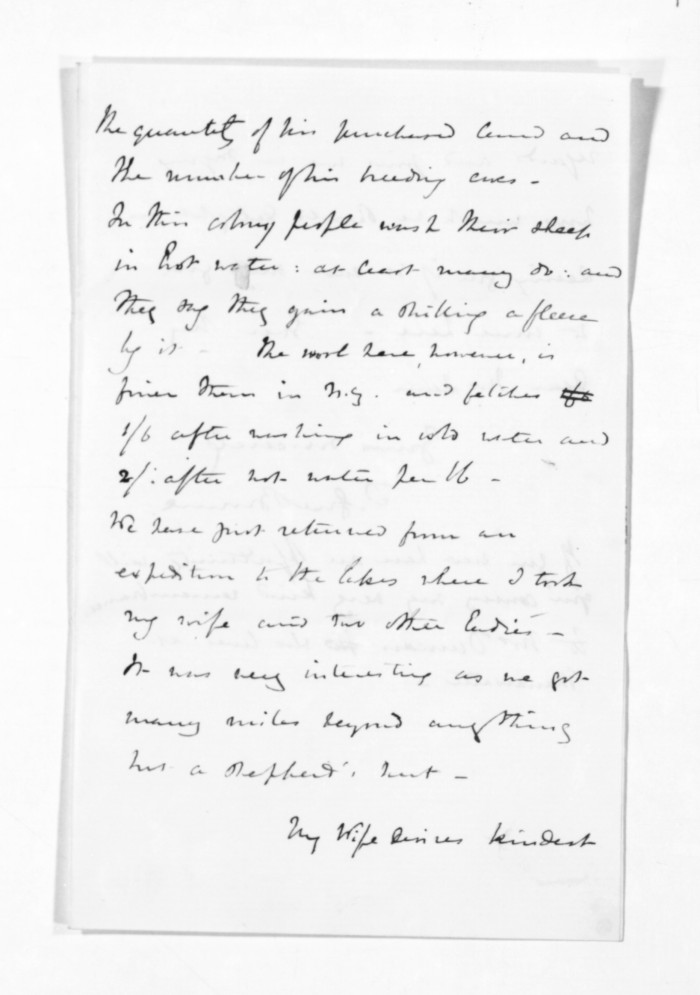 the quantity of his purchased land and
the number of his breeding ewes -
In this colony people wash their sheep
in hot water: at least many do: and
they say they gain a shilling a fleece
by it - The wool here, however, is
finer than in N.Z. and fetches
1/6 after washing in cold water and
2/: after hot water per lb -
We have just returned from an
expedition to the lakes where I took
my wife and two other Ladies -
It was very interesting as we got
many miles beyond anything
but a shepherd's hut -
My Wife desires kindest